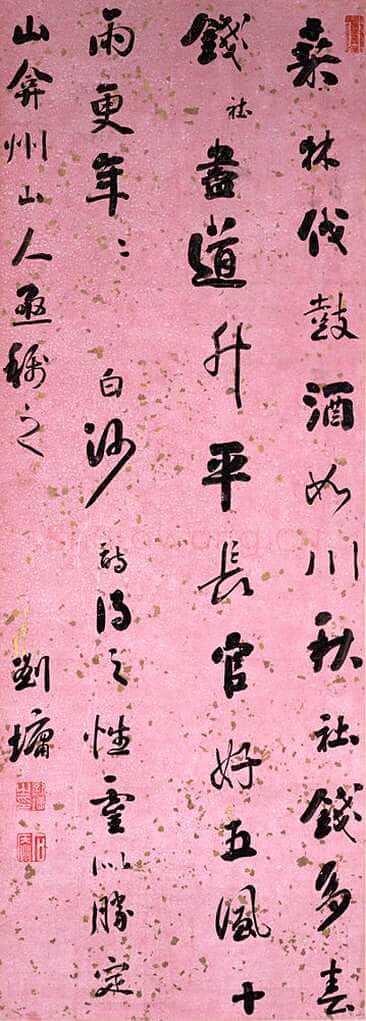 桑林伐鼓酒如川秋社錢多春
錢社盡道升平長官好五風十
雨更年〻白沙詩得之性靈以勝定
山弇州山人亟稱之
劉墉